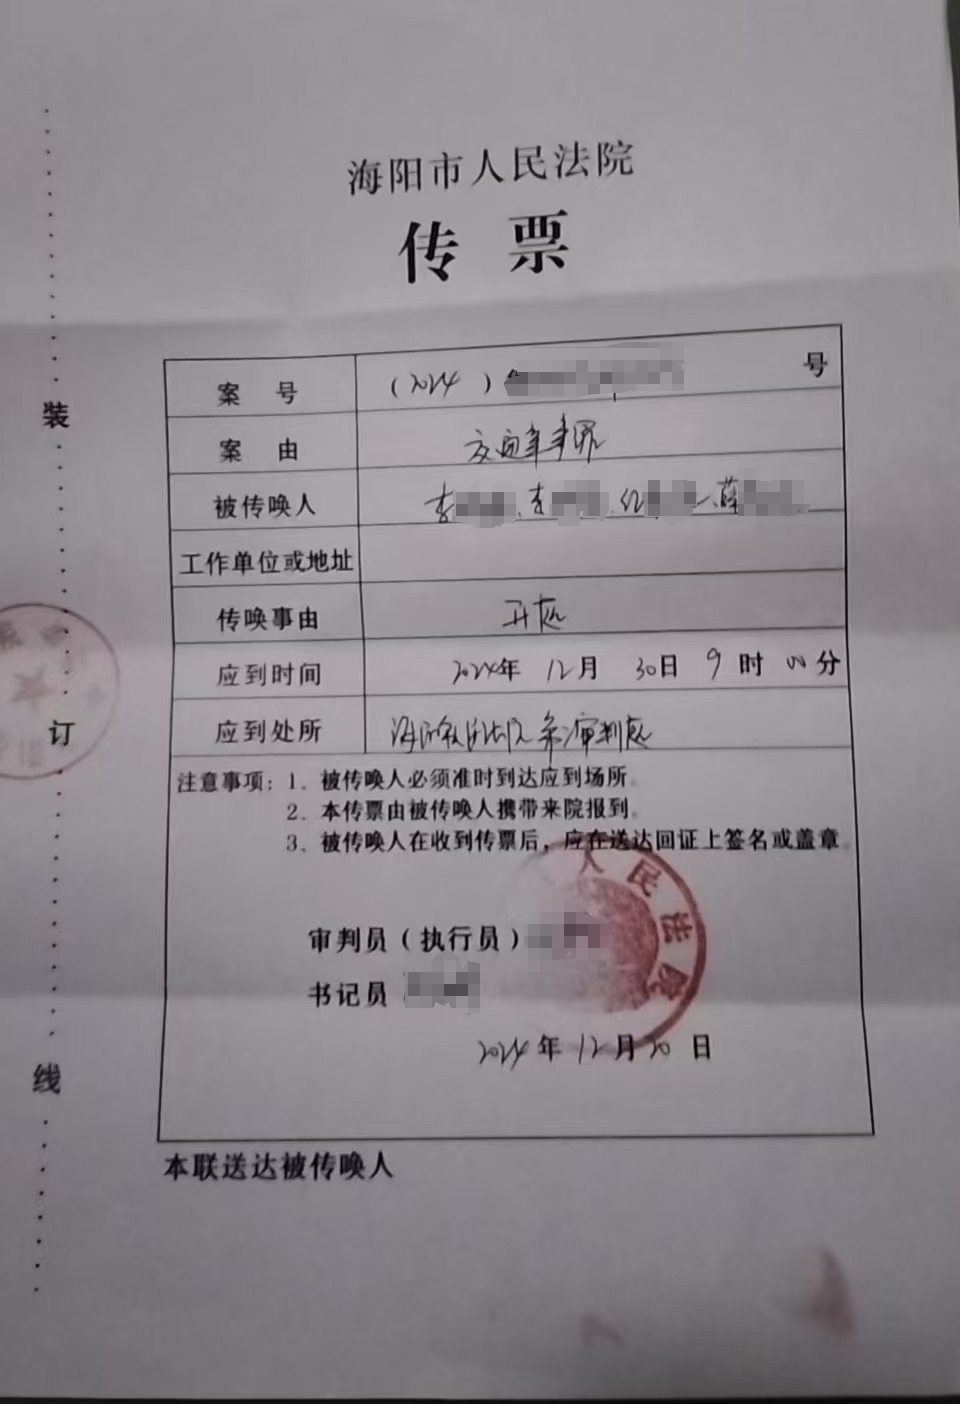 海阳市人民法院
传票
案号 （2024） 号
案由 交通肇事罪
被传唤人 李 、李 、纪 、薛
工作单位或地址
传唤事由 开庭
应到时间 2024年12月30日9时00分
应到处所 海阳 法院 审判庭
注意事项：1、被传唤人必须准时到达应到场所。
2、本传票由被传唤人携带来院报到。
3、被传唤人在收到传票后，应在送达回证上签名或盖章。
人民法院
审判员（执行员）
书记员
2024年12月20日
本联送达被传唤人
装
订
线